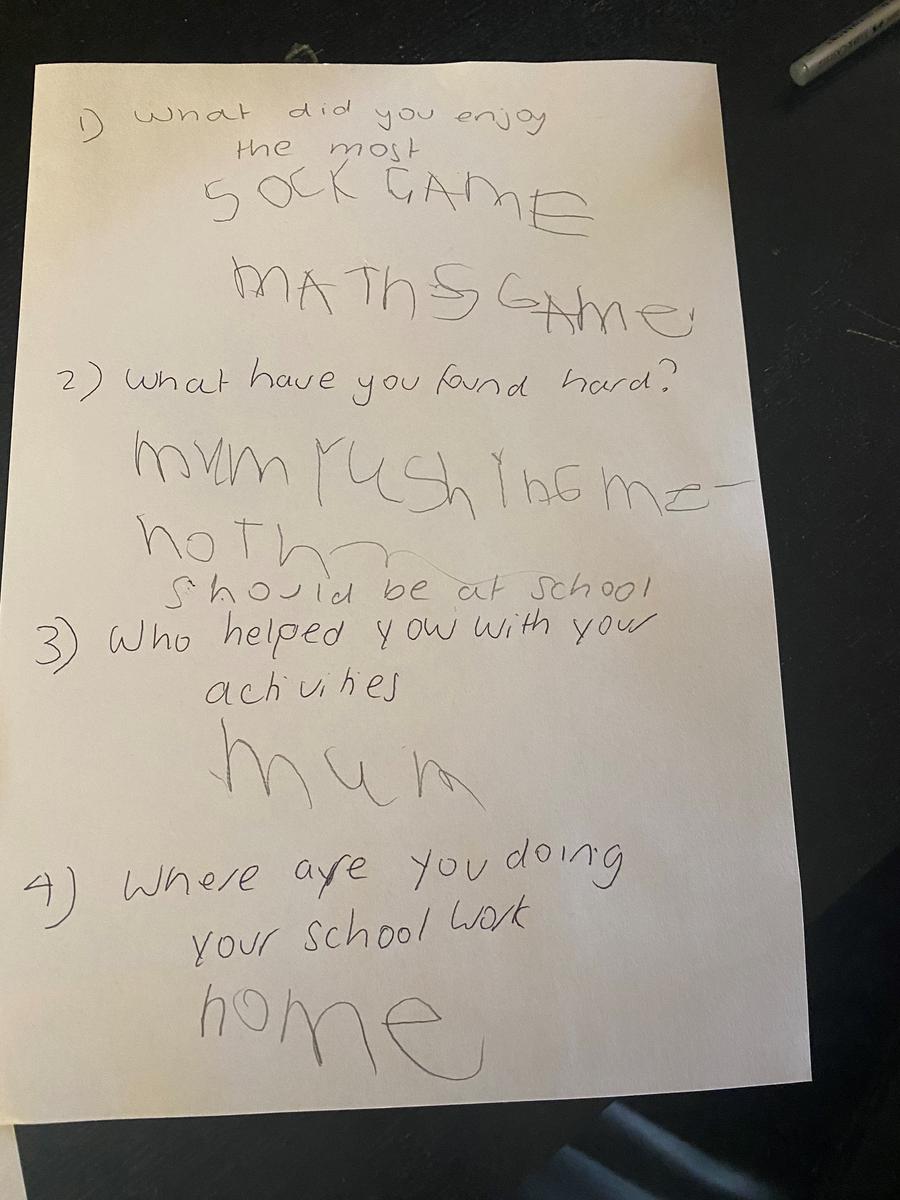 1) What did you enjoy
the most
SOCK GAME
MATHS GAMe
2) What have you found hard?
mum rushING me-
noTh
should be at school
3) Who helped you with your
activities
mum
4) Where are you doing
your school work
home